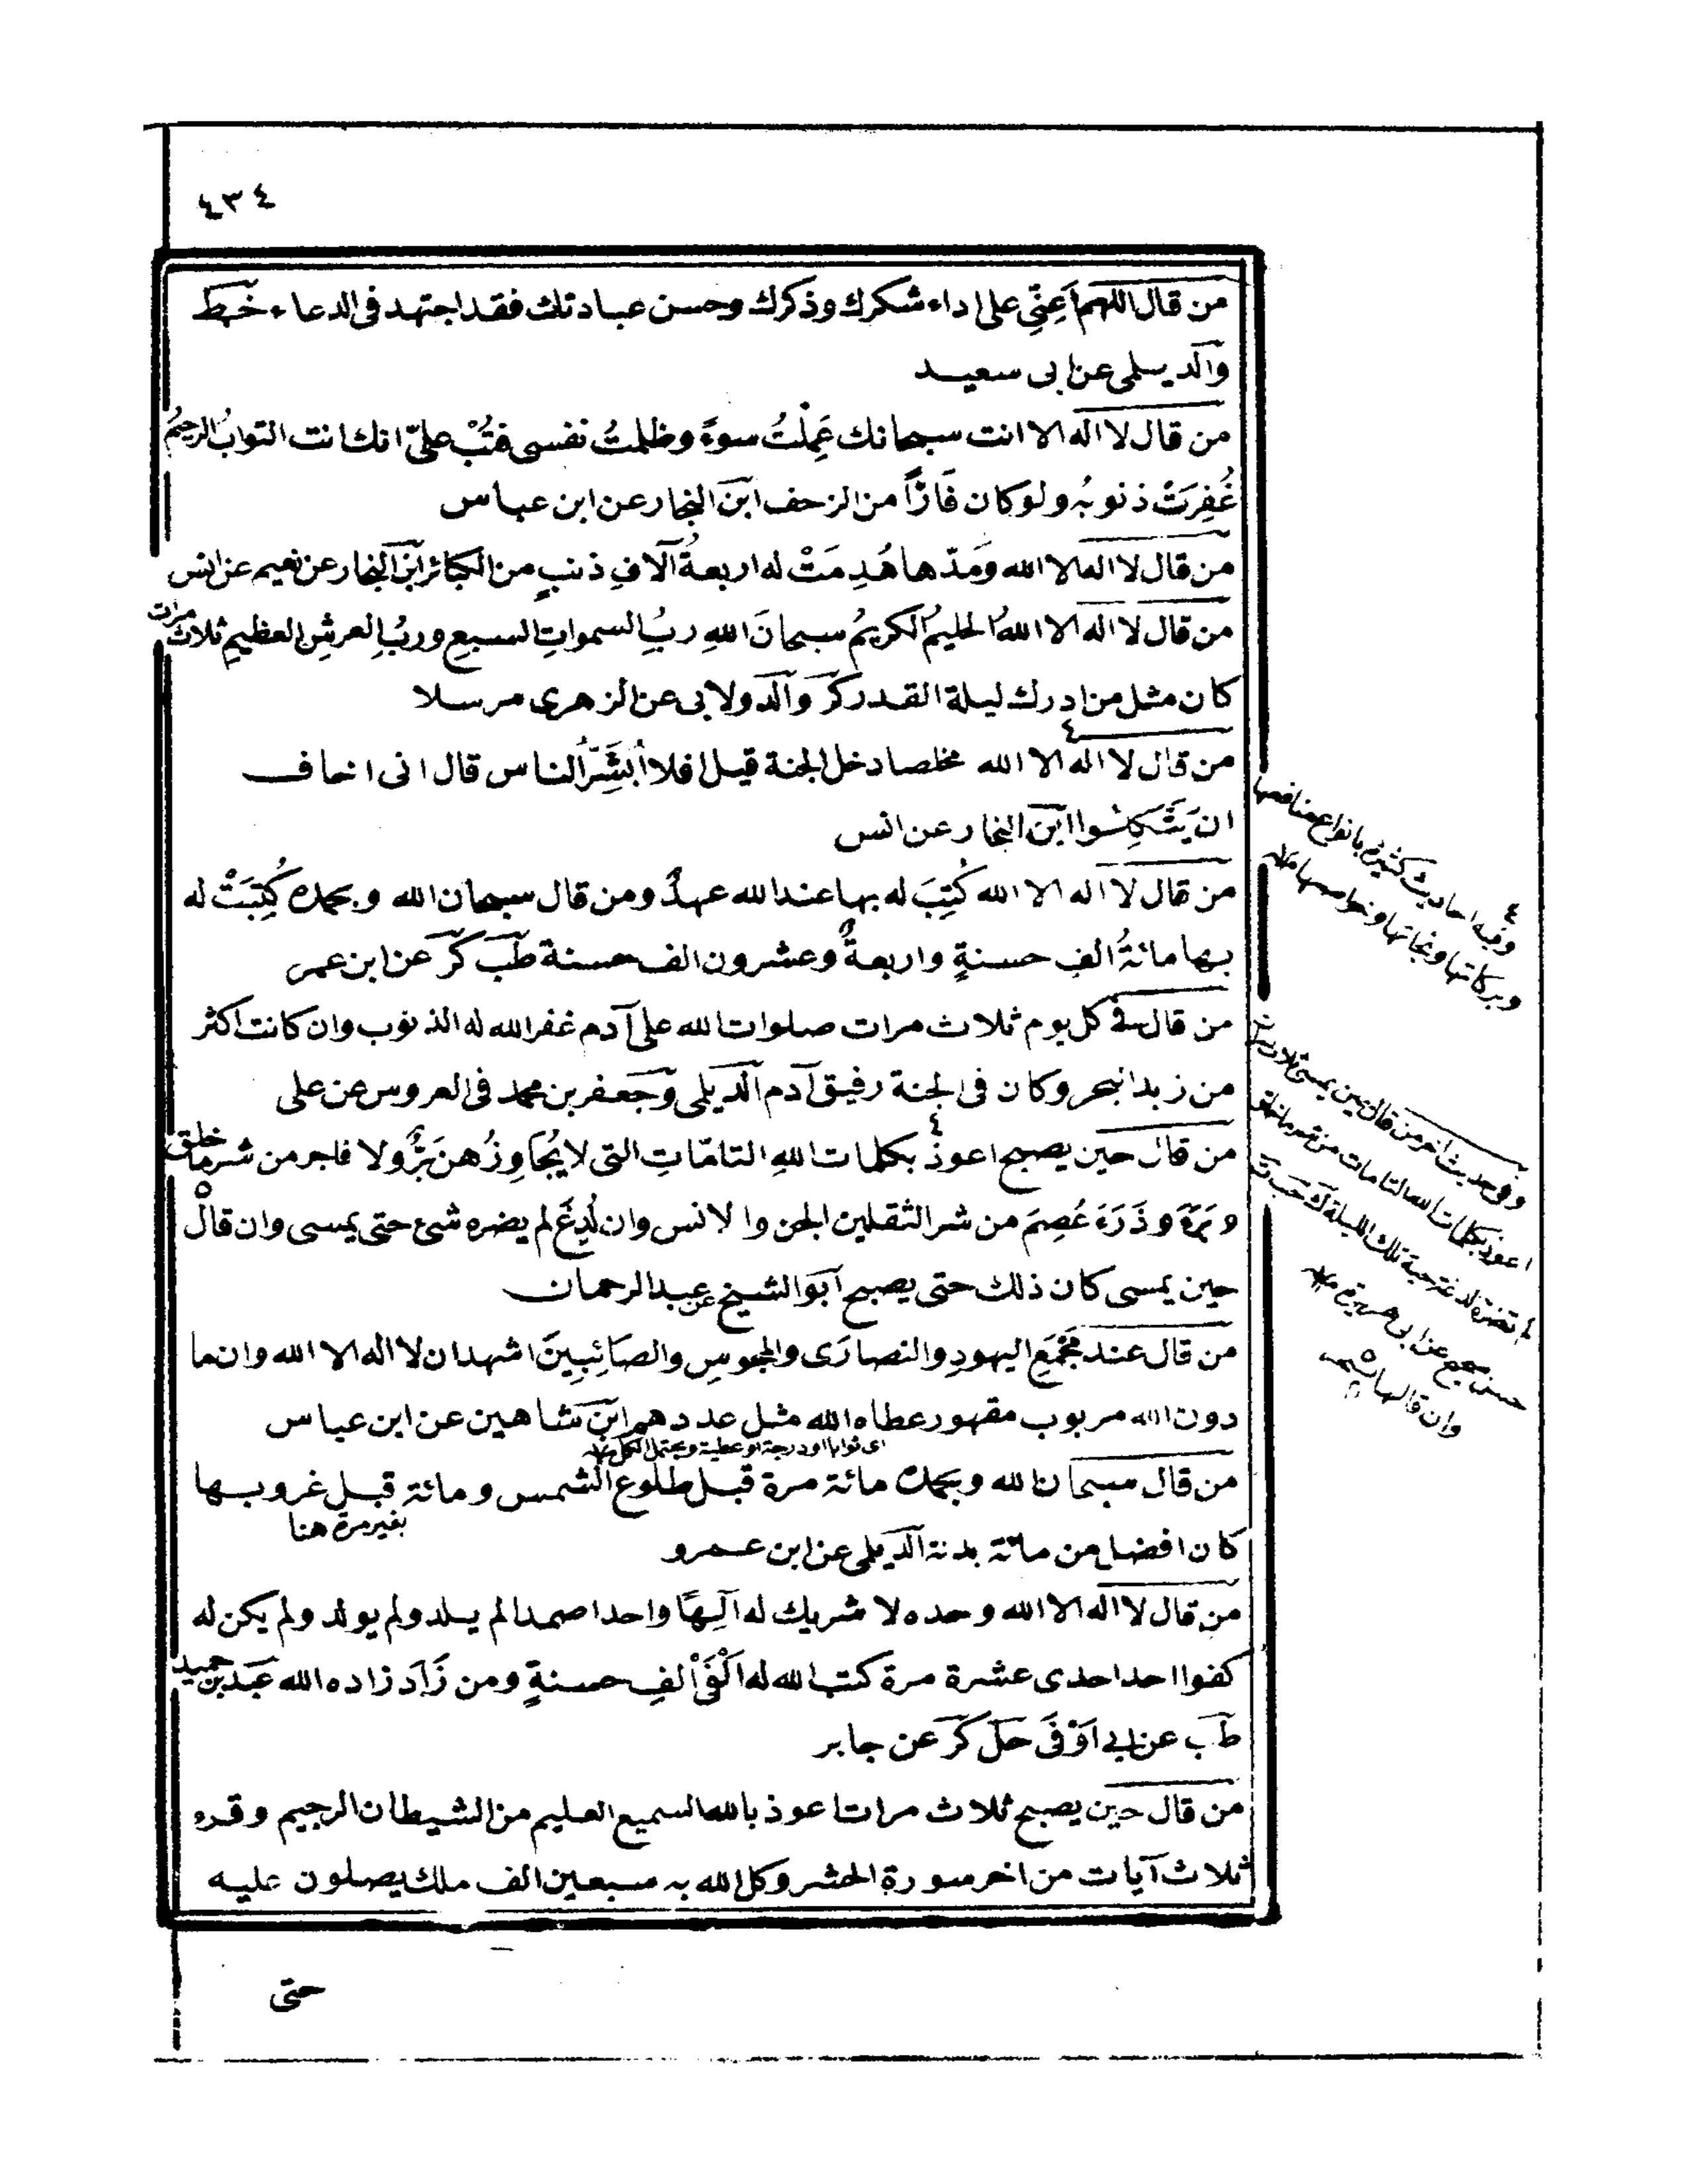 ٤٣٤
من قال اللهم اَعِنِّي على اداء شكرك وذكرك وحسن عبادتك فقد اجتهد فى الدعاء خط
والديلمى عن ابى سعيد
من قال لا اله الا انت سبحانك عَمِلْتُ سوءً وظلمتُ نفسى فتُبْ علىّ انك انت التوابُ الرحيمُ
غُفِرَتْ ذنوبُه ولو كان فَارًّا من الزحف ابن النجار عن ابن عباس
من قال لا اله الا الله وَمَدّها هُدِمَتْ له اربعةُ آلافِ ذنبٍ من الكبائر ابن النجار عن نعيم عن انس
من قال لا اله الا اللهُ الحليمُ الكريمُ سبحانَ اللهِ ربِّ السمواتِ السبعِ وربِّ العرشِ العظيمِ ثلاث مرات
كان مثل من ادرك ليلة القدر كر والدولابى عن الزهرى مرسلا
من قال لا اله الا الله ٤ مخلصا دخل الجنة قيل افلا اُبَشِّرُ الناس قال انى اخاف
ان يَتَّكِلُوا ابن النجار عن انس
من قال لا اله الا الله كُتِبَ له بها عند الله عهدٌ ومن قال سبحان الله وبحمده كُتِبَتْ له
بها مائةُ الفِ حسنةٍ واربعةٌ وعشرون الف حسنة طب كر عن ابن عمر
من قال فى كل يوم ثلاث مرات صلوات الله على آدم غفر الله له الذنوب وان كانت اكثر
من زبد البحر وكان فى الجنة رفيق آدم الديلمى وجعفر بن محمد فى العروس عن على
من قال حين يصبح اعوذ ٤ بكلمات اللهِ التامّاتِ التى لا يُجَاوِزُهن بَرٌّ ولا فاجر من شر ما خلق
وبَرَءَ وذَرَءَ عُصِمَ من شر الثقلين الجن والانس وان لُدِغَ لم يضره شئ حتى يمسى وان قال ٥
حين يمسى كان ذلك حتى يصبح ابو الشيخ عن عبد الرحمان
من قال عند مَجْمَعِ اليهودِ والنصارَى والمجوسِ والصائِبِينَ اشهد ان لا اله الا الله وان ما
دون الله مربوب مقهور عطاه الله مثل عددهم ابن شاهين عن ابن عباس
اى ثوابا او درجة او عطية ويحتمل الكل
من قال سبحان الله وبحمده مائة مرة قبل طلوع الشمس ومائة قبل غروبها
بغير مرة هنا
كان افضل من مائة بدنة الديلمى عن ابن عمرو
من قال لا اله الا الله وحده لا شريك له اَلِهًا واحدا صمدا لم يلد ولم يولد ولم يكن له
كفوا احد احدى عشرة مرة كتب الله له اَلْفَىْ الفِ حسنةٍ ومن زَادَ زاده الله عبد بن حميد
طب عن ابى اَوْفَى حل كر عن جابر
من قال حين يصبح ثلاث مرات اعوذ بالله السميع العليم من الشيطان الرجيم وقرء
ثلاث آيات من اخر سورة الحشر وكل الله به سبعين الف ملك يصلون عليه
حتى
٤
وفيه احاديث كثيرة بانواع منافعها
وبركاتها ونجاتها وخواصها
وفى حديث آخر من قال حين يمسى ثلاث مرات
اعوذ بكلمات الله التامات من شر ما خلق
لم تضره لدغة حية تلك الليلة ك حب ت
حسن صحيح عن ابى هريرة
وان قالها